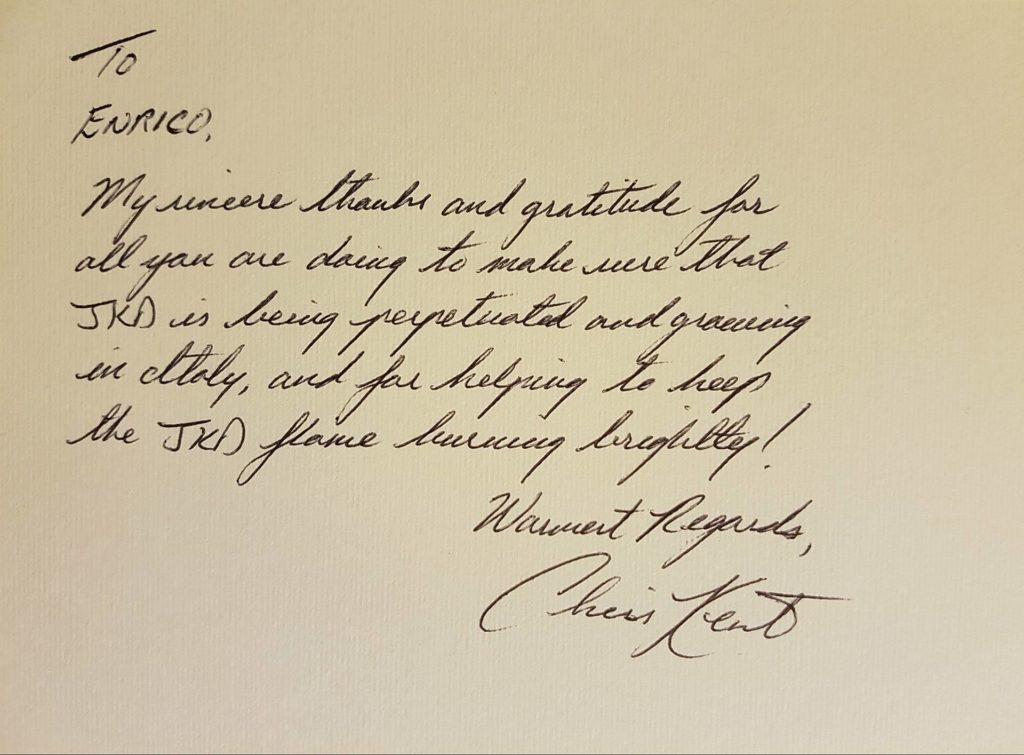 To
ENRICO,
My sincere thanks and gratitude for
all you are doing to make sure that
JKD is being perpetuated and growing
in Italy, and for helping to keep
the JKD flame burning brightly!
Warmest Regards,
Chris Kent